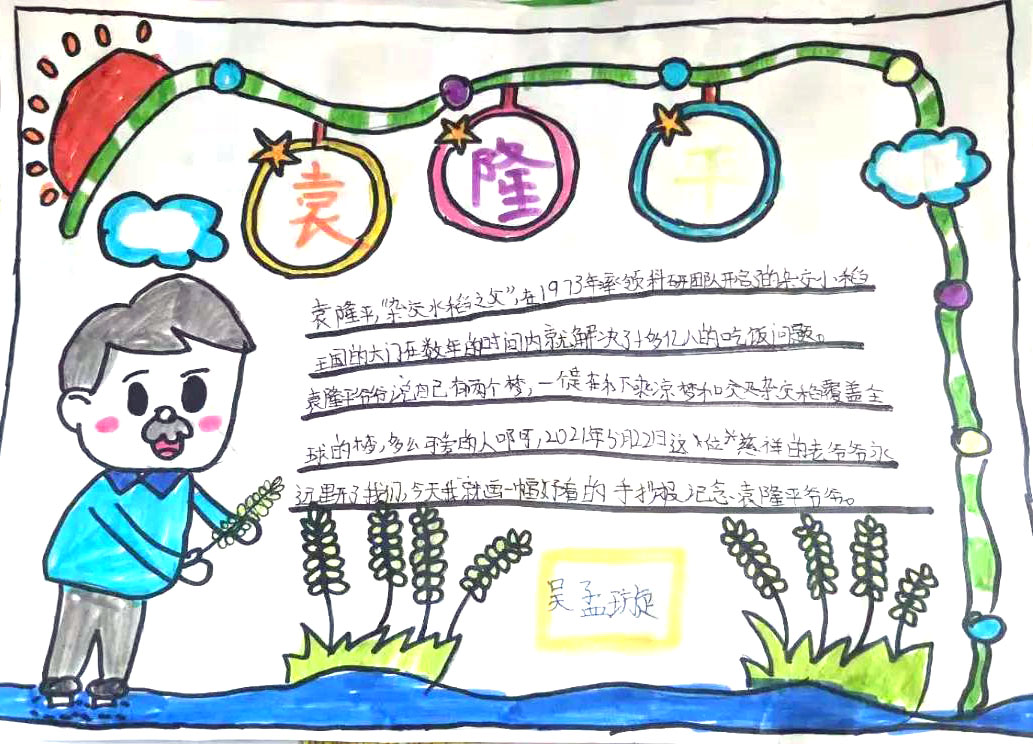 袁隆平
袁隆平,"杂交水稻之父",在1973年率领科研团队开启的杂交小稻
王国的大门在数年的时间内就解决了十多亿人的吃饭问题。
袁隆平爷爷说自己有两个梦,一个是在禾下乘凉梦和杂交稻覆盖全
球的梦,多么可爱的人啊呀,2021年5月22日这"位"慈祥的老爷爷永
远离开了我们,今天我就画一幅好看的手抄报记念袁隆平爷爷。
吴孟璇